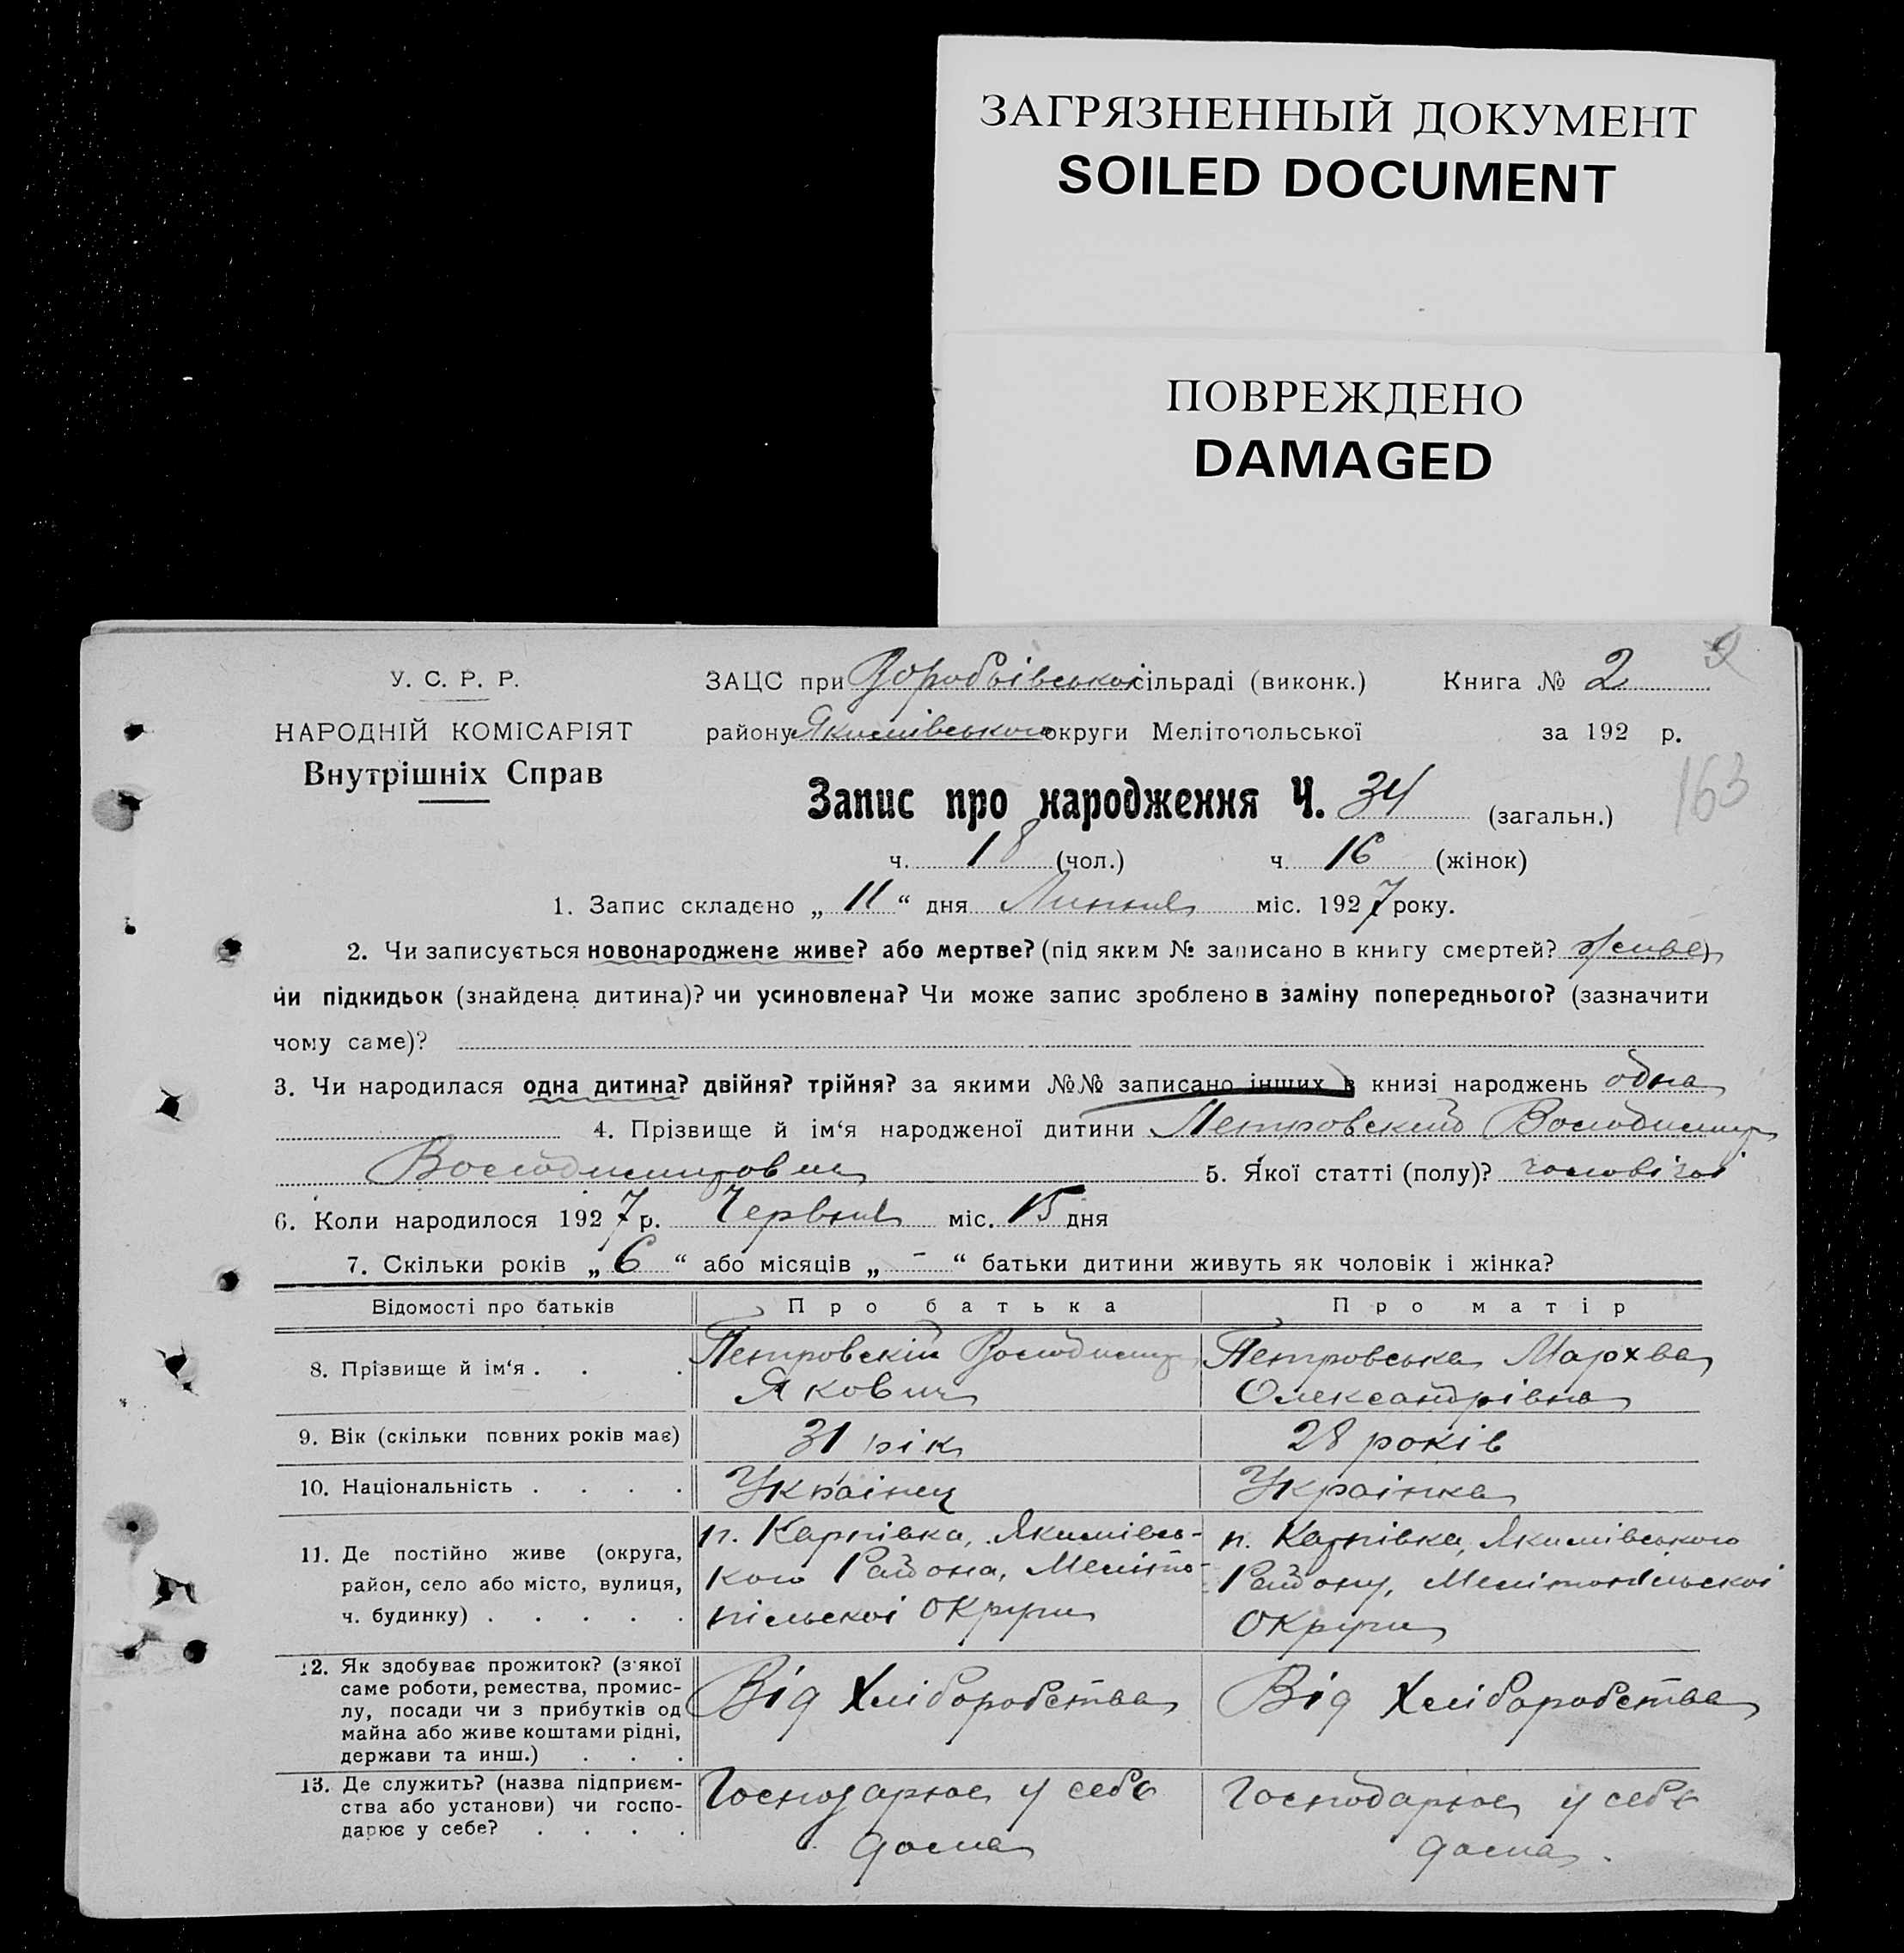 ЗАГРЯЗНЕННЫЙ ДОКУМЕНТ
SOILED DOCUMENT
ПОВРЕЖДЕНО
DAMAGED
2
У. С. Р. Р.
НАРОДНІЙ КОМІСАРІЯТ
Внутрішніх Справ
ЗАЦС при Воробьівської сільраді (виконк.) Книга № 2
району Якимівського округи Мелітопольської за 192 р.
163
Запис про народження Ч. 34 (загальн.)
ч. 18 (чол.) ч. 16 (жінок)
1. Запис складено „ 11 “ дня Липня міс. 1927 року.
2. Чи записується новонароджене живе? або мертве? (під яким № записано в книгу смертей? живе)
чи підкидьок (знайдена дитина)? чи усиновлена? Чи може запис зроблено в заміну попереднього? (зазначити
чому саме)?
3. Чи народилася одна дитина? двійня? трійня? за якими №№ записано інших в книзі народжень одна
4. Прізвище й ім‘я народженої дитини Петровский Володимир
Володимирович 5. Якої статті (полу)? чоловічої
6. Коли народилося 1927 р. Червня міс. 15 дня
7. Скільки років „ 6 “ або місяців „ - “ батьки дитини живуть як чоловік і жінка?
Відомості про батьків Про батька Про матір
8. Прізвище й ім‘я . . . Петровскій Володимир Петровська Мархва
Якович Олександрівна
9. Вік (скільки повних років має) 31 рік 28 років
10. Національність . . . . Українец Українка
11. Де постійно живе (округа, п. Карпівка, Якимівсь- п. Карпівка, Якимівського
район, село або місто, вулиця, кого Района, Меліто- Району, Мелітопільскоі
ч. будинку) . . . . . пільскоі Округи Округи
12. Як здобуває прожиток? (з‘якої
саме роботи, ремества, промис-
лу, посади чи з прибутків од Від Хліборобства Від Хліборобства
майна або живе коштами рідні,
держави та инш.) . . .
13. Де служить? (назва підприєм- Господарює у себе Господарює у себе
ства або установи) чи госпо- дома дома.
дарює у себе? . . . .